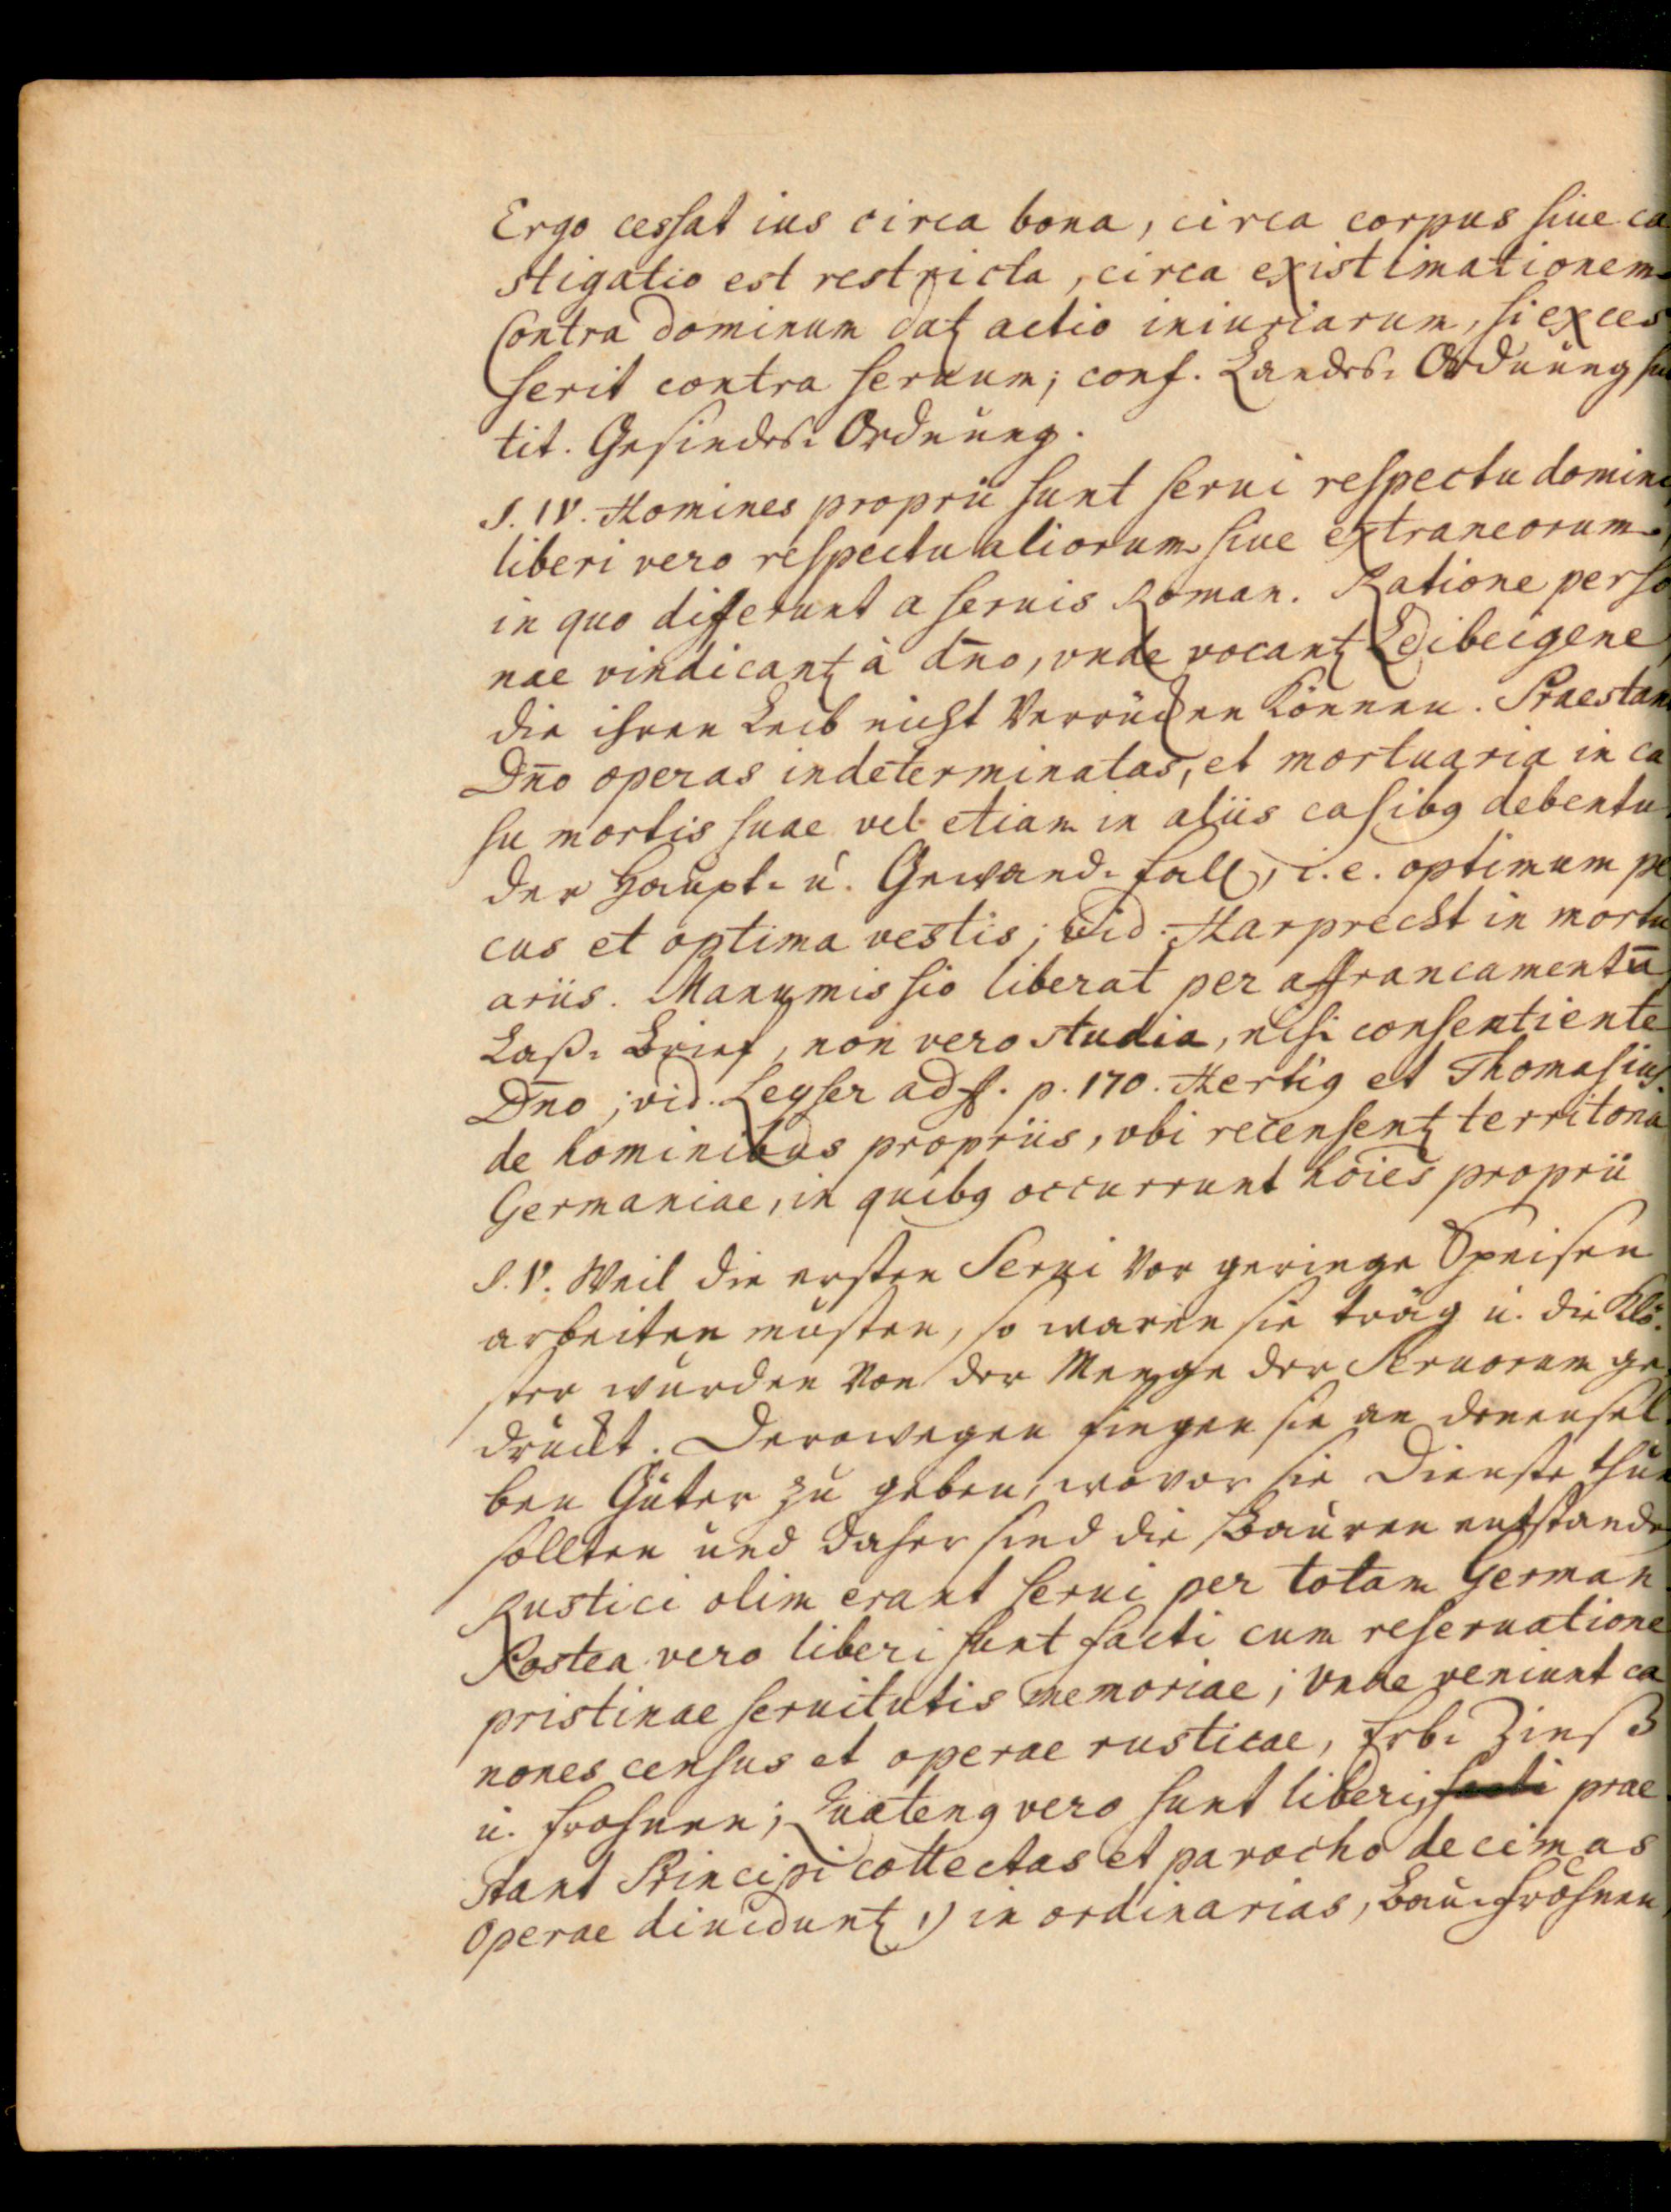 Ergo cessat ius circa bona, circa corpus siue ca
stigatio est restricta, circa existimationem
Contra dominum dat actio iniuriarum, si exces
serit contra seruum; conf. Landes-Ordnung sub
tit. Gesindes-Ordnung.
§. IV. Homines proprii sunt serui respectu domini,
liberi vero respectu aliorum siue extraneorum,
in quo differunt a seruis Roman. Ratione perso
nae vindicant à dn̄o, vnde vocant Leibeigene,
die ihren Leib nicht Verrücken können. Praestant
Dn̄o operas indeterminatas, et mortuaria in ca
su mortis suae vel etiam in aliis casibq debentur
der Haupt- u. Gewand-fall, i.e. optimum pe
cus et optima vestis; vid. Harprecht in mortu
ariis. Manumissio liberat per affrancamentū
Laß-Brief, non vero studia, nisi consentiente
Dn̄o; vid. Leyser ad ff. p. 170. Hertig et Thomasius.
de hominibus propriis, vbi recensent territoria
Germaniae, in quibq occurrunt hōies proprii
§. V. Weil die ersten Serui Vor geringe Speisen
arbeiten musten, so waren sie träg u. die Klö-
ster wurden Von der Menge der Seruorum ge-
druckt. Derowegen fingen sie an denensel-
ben Güter zu geben, wovor sie Dienste thun
sollten und daher sind die Bauren entstanden
Rustici olim erant serui per totam German.
Postea vero liberi sunt facti cum reseruatione
pristinae seruitutis memoriae; vnde veniunt ca
nones census et operae rusticae, Erb-Zinß
u. Frohnen; Quatenq vero sunt liberi, facti prae
stant Principi collectas et parocho decimas
Operae diuidunt 1) in ordinarias, Bau-Frohnen,